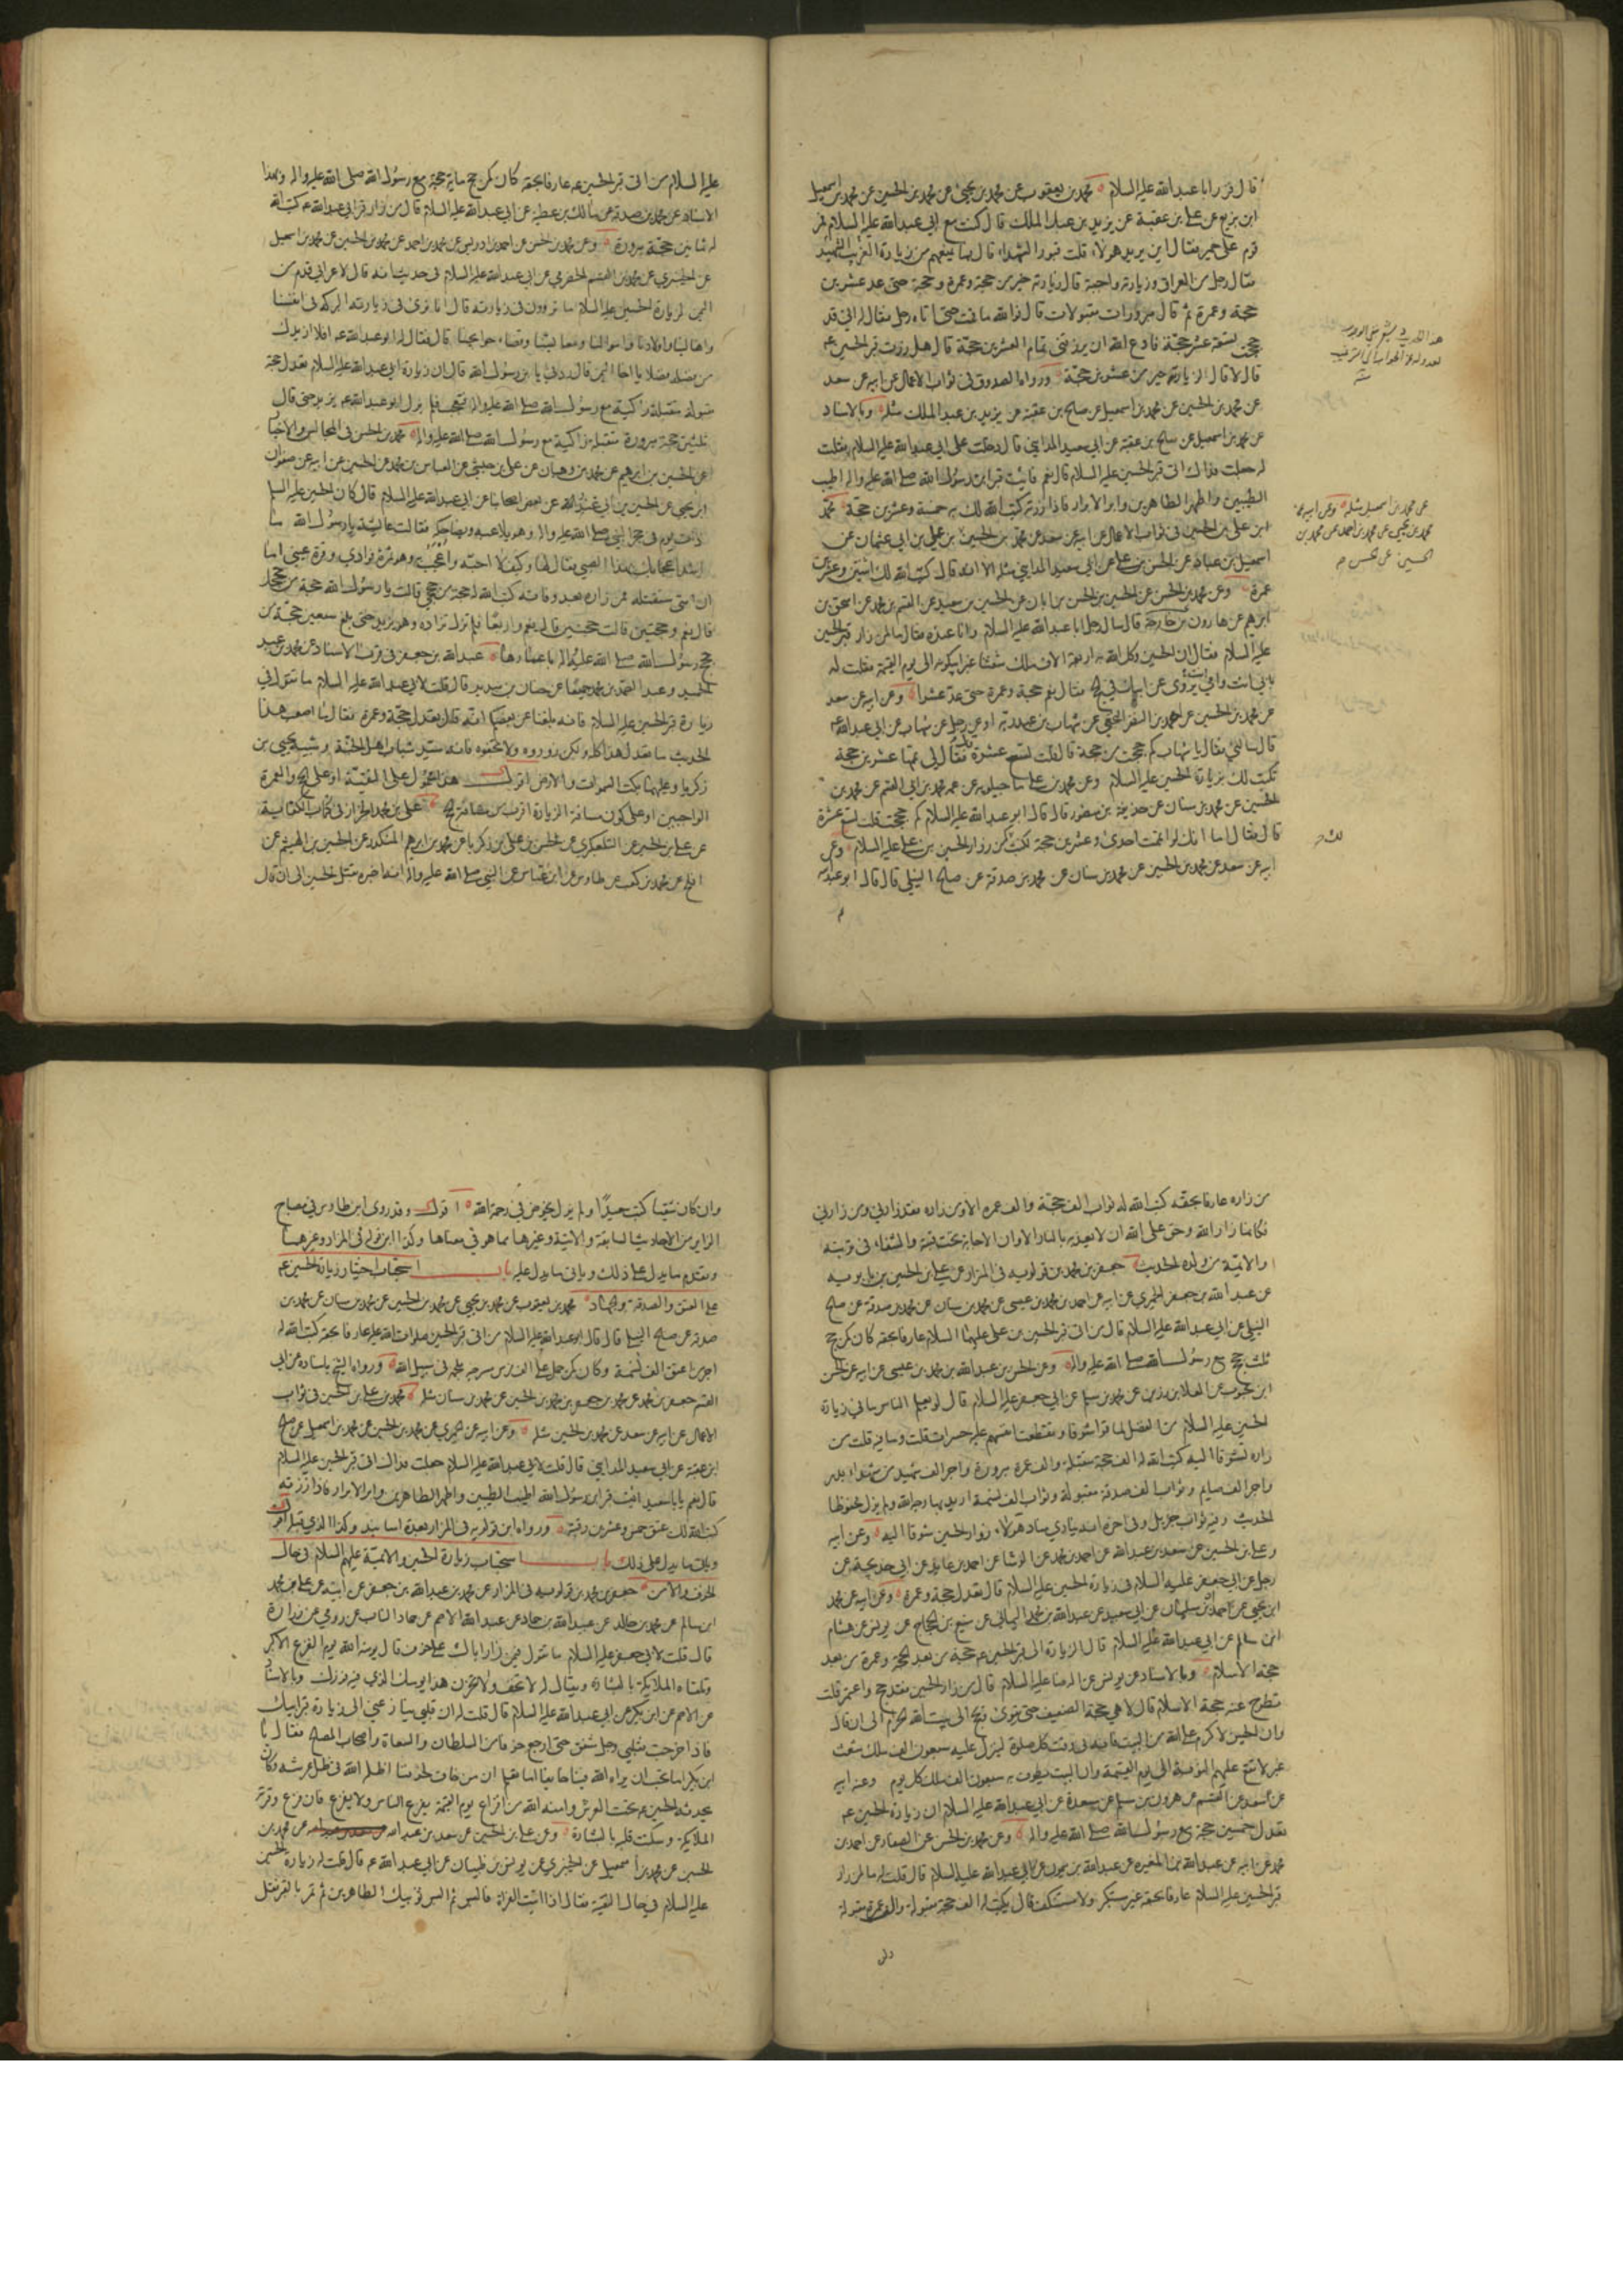 قال فزر ابا عبدالله عليه السلام محمد بن يعقوب عن محمد بن يحيى عن محمد بن الحسين عن محمد بن اسمعيل
ابن بزيع عن صالح بن عقبة عن يزيد بن عبد الملك قال كنت مع ابي عبدالله عليه السلام فمر
قوم على حمر فقال اين يريد هولاء قلت قبور الشهداء قال فما يمنعهم من زيارة الغريب الشهيد
فقال رجل من العراق وزيارته واجبة قال زيارته خير من حجة وعمرة وحجة حتى عد عشرين
حجة وعمرة ثم قال مبرورات متقبولات قال فوالله ما قمت حتى اتاه رجل فقال له اني قد
حججت تسعة عشر حجة فادع الله ان يرزقني تمام العشرين حجة قال هل زرت قبر الحسين عم
قال لا قال لزيارته خير من عشرين حجة ورواه الصدوق في ثواب الاعمال عن ابيه عن سعد
عن محمد بن الحسين عن محمد بن اسمعيل عن صالح بن عقبة عن يزيد بن عبد الملك مثله وبالاسناد
عن محمد بن اسمعيل عن صالح بن عقبة عن ابي سعيد المدايني قال دخلت على ابي عبدالله عليه السلام فقلت
له جعلت فداك اتي قبر الحسين عليه السلام قال نعم فائت قبر ابن رسول الله صلى الله عليه واله اطيب
الطيبين واطهر الطاهرين وابر الابرار فاذا زرته كتب الله لك به خمسة وعشرين حجة محمد
ابن علي بن الحسين في ثواب الاعمال عن ابيه عن سعد عن محمد بن الحسين بن علي بن ابي عثمان عن
اسمعيل بن عباد عن الحسن بن علي عن ابي سعيد المدايني مثله الا انه قال كتب الله لك اثنتين وعشرين
عمرة وعن محمد بن الحسن عن الحسين بن الحسن بن ابان عن الحسين بن سعيد عن القسم بن محمد عن اسحق بن
ابرهيم عن هارون بن خارجة قال سال رجل ابا عبدالله عليه السلام وانا عنده فقال ما لمن زار قبر الحسين
عليه السلام فقال ان الحسين وكل الله به اربعة الاف ملك شعثا غبرا يبكونه الى يوم القيمة فقلت له
بابي انت وامي يروى عن ابيك في الحج فقال نعم حجة وعمرة حتى عد عشرا وعن ابيه عن سعد
عن محمد بن الحسين عن احمد بن النضر الخثعمي عن شهاب بن عبد ربه او عن رجل عن شهاب عن ابي عبدالله عم
قال سالني فقال يا شهاب كم حججت من حجة قال قلت تسع عشرة فقال لي تمها عشرين حجة
تكتب لك بزيارة الحسين عليه السلام وعن محمد بن علي ماجيلويه عن عمه محمد بن ابي القسم عن محمد بن
الحسين عن محمد بن سنان عن حذيفة بن منصور قال قال ابو عبدالله عليه السلام كم حججت قلت تسع عشرة
قال فقال اما انك لو اتممت احدى وعشرين حجة لكنت كمن زار الحسين بن علي عليه السلام وعن
ابيه عن سعد عن محمد بن الحسين عن محمد بن سنان عن محمد بن صدقة عن صالح النيلي قال قال ابو عبدالله
عن محمد بن اسمعيل مثله وعن ابيه عن
محمد بن يحيى عن محمد بن احمد عن محمد بن
الحسين عن
عليه السلام من اتى قبر الحسين عم عارفا بحقه كان كمن حج مائة حجة مع رسول الله صلى الله عليه واله وبهذا
الاسناد عن محمد بن صدقة عن مالك بن عطية عن ابي عبدالله عليه السلام قال من زار قبر ابي عبدالله عم كتب الله
له ثمانين حجة مبرورة وعن محمد بن الحسن عن احمد بن ادريس عن محمد بن احمد عن محمد بن الحسين عن محمد بن اسمعيل
عن الخيبري عن محمد بن القسم الحضرمي عن ابي عبدالله عليه السلام في حديث انه قال لاعرابي قدم من
اليمن لزيارة الحسين عليه السلام ما ترون في زيارته قال انا نرى في زيارته البركة في انفسنا
واهالينا واولادنا واموالنا ومعايشنا وقضاء حوايجنا قال فقال له ابو عبدالله عم افلا ازيدك
من فضله فضلا يا اخا اليمن قال زدني يا بن رسول الله قال ان زيارة ابي عبدالله عليه السلام تعدل حجة
مقبولة متقبلة زاكية مع رسول الله صلى الله عليه واله فتعجب فلم يزل ابو عبدالله عم يزيد حتى قال
ثلثين حجة مبرورة متقبلة زاكية مع رسول الله صلى الله عليه واله محمد بن الحسن في المجالس والاخبار
عن الحسين بن ابرهيم عن محمد بن وهبان عن علي بن حبشي عن العباس بن محمد بن الحسين عن ابيه عن صفوان
ابن يحيى عن الحسين بن ابي غندر عن بعض اصحابنا عن ابي عبدالله عليه السلام قال كان الحسين عليه السلام
ذات يوم في حجر النبي صلى الله عليه واله وهو يلاعبه ويضاحكه فقالت عايشة يا رسول الله ما
اشد اعجابك بهذا الصبي فقال لها وكيف لا احبه واعجب به وهو ثمرة فوادي وقرة عيني اما
ان امتي ستقتله فمن زاره بعد وفاته كتب الله له حجة من حججي قالت يا رسول الله حجة من حججك
قال نعم وحجتين قالت حجتين قال نعم واربعا فلم تزل تزاده وهو يزيد حتى بلغ سبعين حجة من
حجج رسول الله صلى الله عليه واله باعمارها عبدالله بن جعفر في قرب الاسناد عن محمد بن عبد
الحميد وعبد الصمد بن محمد جميعا عن حنان بن سدير قال قلت لابي عبدالله عليه السلام ما تقول في
زيارة قبر الحسين عليه السلام فانه بلغنا عن بعضكم انه قال تعدل حجة وعمرة فقال ما اصعب هذا
الحديث ما تعدل هذا كله ولكن زوروه ولا تجفوه فانه سيد شباب اهل الجنة وشبيه يحيى بن
زكريا وعليهما بكت السموات والارض اقول هذا محمول على التقية او على الحج والعمرة
الواجبين او على كون مسافة الزيارة اقرب من مسافة الحج علي بن محمد الخزاز في كتاب الكفاية
عن علي بن الحسين عن التلعكبري عن الحسن بن علي بن زكريا عن محمد بن ابرهيم المنكدر عن الحسين بن الهيثم عن
افلح عن محمد بن كعب عن طاوس عن ابن عباس عن النبي صلى الله عليه واله انه اخبره بقتل الحسين الى ان قال
من زاره عارفا بحقه كتب الله له ثواب الف حجة والف عمرة الا ومن زاره فقد زارني ومن زارني
فكانما زار الله وحق على الله ان لا يعذبه بالنار الا وان الاجابة تحت قبته والشفاء في تربته
والائمة من ولده الحديث جعفر بن محمد بن قولويه في المزار عن علي بن الحسين بن بابويه
عن عبدالله بن جعفر الحميري عن ابيه عن احمد بن محمد بن عيسى عن محمد بن سنان عن محمد بن صدقة عن صالح
النيلي عن ابي عبدالله عليه السلام قال من اتى قبر الحسين بن علي عليهما السلام عارفا بحقه كان كمن حج
ثلث حجج مع رسول الله صلى الله عليه واله وعن الحسن بن عبدالله بن محمد بن عيسى عن ابيه عن الحسن
ابن محبوب عن العلا بن رزين عن محمد بن مسلم عن ابي جعفر عليه السلام قال لو يعلم الناس ما في زيارة
الحسين عليه السلام من الفضل لماتوا شوقا وتقطعت انفسهم عليه حسرات قلت وما فيه قلت من
زاره تشوقا اليه كتب الله له الف حجة متقبلة والف عمرة مبرورة واجر الف شهيد من شهداء بدر
واجر الف صايم وثواب الف صدقة مقبولة وثواب الف نسمة اريد بها وجه الله ولم يزل محفوظا
الحديث وفيه ثواب جزيل وفي اخره انه ينادي مناد هولاء زوار الحسين شوقا اليه وعن ابيه
وعلي بن الحسين عن سعد بن عبدالله عن احمد بن محمد عن الوشا عن احمد بن عايذ عن ابي خديجة عن
رجل عن ابي جعفر عليه السلام في زيارة الحسين عليه السلام قال تعدل حجة وعمرة وعن ابيه عن محمد
ابن يحيى عن احمد بن سليمان عن ابي سعيد عن عبدالله بن محمد اليماني عن منيع بن الحجاج عن يونس عن هشام
ابن سالم عن ابي عبدالله عليه السلام قال الزيارة الى قبر الحسين عم حجة من بعد الحجة وعمرة من بعد
حجة الاسلام وبالاسناد عن يونس عن الرضا عليه السلام قال من زار الحسين فقد حج واعتمر قلت
تطرح عنه حجة الاسلام قال لا هي حجة الضعيف حتى يقوى ويحج الى بيت الله الحرام الى ان قال
وان الحسين لاكرم على الله من البيت فانه في وقت كل صلوة لينزل عليه سبعون الف ملك شعث
غبر لا تقع عليهم النوبة الى يوم القيمة وان البيت يطوف به سبعون الف ملك كل يوم وعن ابيه
عن سعد عن القسم عن هرون بن مسلم عن مسعدة عن ابي عبدالله عليه السلام ان زيارة الحسين عم
تعدل خمسين حجة مع رسول الله صلى الله عليه واله وعن محمد بن الحسن عن الصفار عن احمد بن
محمد عن ابيه عن عبدالله بن المغيرة عن عبدالله بن ميمون عن ابي عبدالله عليه السلام قال قلت له ما لمن زار
قبر الحسين عليه السلام عارفا بحقه غير مستكبر ولا مستنكف قال يكتب له الف حجة مقبولة والف عمرة مقبولة
وان كان شقيا كتب سعيدا ولم يزل يخوض في رحمة الله اقول وقد روى ابن طاوس في مصباح
الزاير من الاحاديث السابقة والاتية وغيرها مما هو في معناها وكذا ابن قولويه في المزار وغيرهما
وتقدم ما يدل على ذلك وياتي ما يدل عليه باب استحباب اختيار زيارة الحسين عم
على العتق والصدقة والجهاد محمد بن يعقوب عن محمد بن يحيى عن محمد بن الحسين عن محمد بن سنان عن محمد بن
صدقة عن صالح النيلي قال قال ابو عبدالله عليه السلام من اتى قبر الحسين صلوات الله عليه عارفا بحقه كتب الله له
اجر من اعتق الف نسمة وكان كمن حمل على الف فرس مسرجة ملجمة في سبيل الله ورواه الشيخ باسناده عن ابي
القسم جعفر بن محمد عن محمد بن جعفر عن محمد بن الحسين عن محمد بن سنان مثله محمد بن علي بن الحسين في ثواب
الاعمال عن ابيه عن سعد عن محمد بن الحسين مثله وعن ابيه عن الحميري عن محمد بن الحسين عن محمد بن اسمعيل عن صالح
ابن عقبة عن ابي سعيد المدايني قال قلت لابي عبدالله عليه السلام جعلت فداك اتي قبر الحسين عليه السلام
قال نعم يا با سعيد ائت قبر ابن رسول الله اطيب الطيبين واطهر الطاهرين وابر الابرار فاذا زرته
كتب الله لك عتق خمس وعشرين رقبة ورواه ابن قولويه في المزار بعدة اسانيد وكذا الذي قبله اقول
وياتي ما يدل على ذلك باب استحباب زيارة الحسين والائمة عليهم السلام في حال
الخوف والامن جعفر بن محمد بن قولويه في المزار عن محمد بن عبدالله بن جعفر عن ابيه عن علي بن محمد
ابن سالم عن محمد بن خالد عن عبدالله بن حماد عن عبدالله الاصم عن حماد الناب عن رومي عن زرارة
قال قلت لابي جعفر عليه السلام ما تقول فيمن زار اباك على خوف قال يومنه الله يوم الفزع الاكبر
وتلقاه الملايكة بالبشارة ويقال له لا تخف ولا تحزن هذا يومك الذي فيه فوزك وبالاسناد
عن الاصم عن ابن بكير عن ابي عبدالله عليه السلام قال قلت له ان قلبي ينازعني الى زيارة قبر ابيك
فاذا خرجت فقلبي وجل مشفق حتى ارجع خوفا من السلطان والسعاة واصحاب المصالح فقال يا
ابن بكير اما تحب ان يراه الله فينا خايفا اما تعلم ان من خاف لخوفنا اظله الله في ظل عرشه وكان
يحدثه الحسين عم تحت العرش وامنه الله من افزاع يوم القيمة يفزع الناس ولا يفزع فان فزع وقرته
الملايكة وسكنت قلبه بالبشارة وعن علي بن الحسين عن سعد بن عبدالله عن محمد بن
الحسين عن محمد بن اسمعيل عن الخيبري عن يونس بن ظبيان عن ابي عبدالله عم قال قلت له زيارة الحسين
عليه السلام في حال التقية فقال اذا اتيت الفرات فاغتسل ثم البس ثوبيك الطاهرين ثم تمر بالقبر فقل